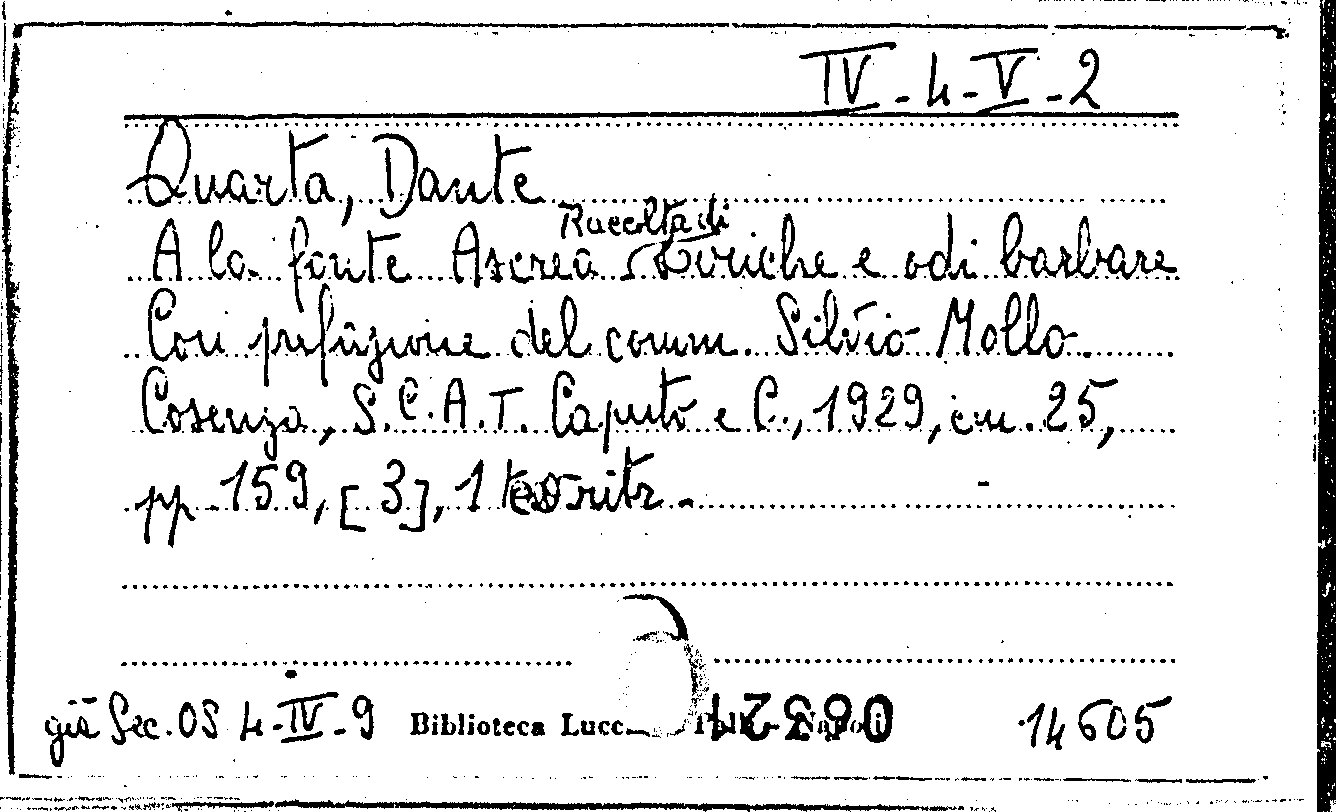 IV-4-V-2
Quarta, Dante
Raccolta di
A la fonte Ascrea Liriche e odi barbare
Con prefazione del comm. Silvio Mollo.
Cosenza, S.C.A.T. Caputo e C., 1929, cm. 25,
pp. 159, [3], 1 ritr.
già Sec. OS 4-IV-9 Biblioteca Lucc 14605